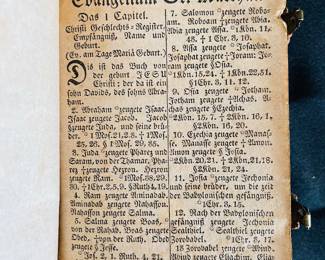 Das 1 Capitel.
Christi Geschlechts-Register,
Empfängniß, Name und
Geburt.
(Ev. am Tage Mariä Geburt.)
Dis ist das Buch von
der geburt JESU
Christi; der da ist ein
sohn Davids, des sohns Abra-
ham.
2. Abraham zeugete Isaac.
Isaac zeugete Jacob. Jacob
zeugete Juda, und seine brü-
der.
3. Juda zeugete Pharez und
Saram, von der Thamar. Pha-
rez zeugete Hezron. Hezron
zeugete Ram.
4. Ram zeugete Aminadab.
Aminadab zeugete Nahasson.
Nahasson zeugete Salma.
5. Salma zeugete Boas,
von der Rahab. Boas zeugete
Obed, von der Ruth. Obed
zeugete Jesse.
7. Salomon zeugete Robo-
am. Roboam zeugete Abia.
Abia zeugete Assa.
8. Assa zeugete Josaphat.
Josaphat zeugete Joram.
Joram zeugete Osia.
9. Osia zeugete Jotham.
Jotham zeugete Achas.
Achas zeugete Ezechia.
10. Ezechia zeugete Manas-
se. Manasse zeugete Amon.
Amon zeugete Josia.
11. Josia zeugete Jechonia
und seine brüder, um die zeit
der Babylonischen gefängniß.
12. Nach der Babylonischen
gefängniß zeugete Jechonia
Sealthiel. Sealthiel zeugete
Zorobabel.
13 Zorobabel zeugete Abiud.
Abiud zeugete Eliachim.